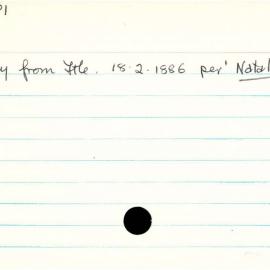 y from Ftle. 18.2.1886 per' Natal